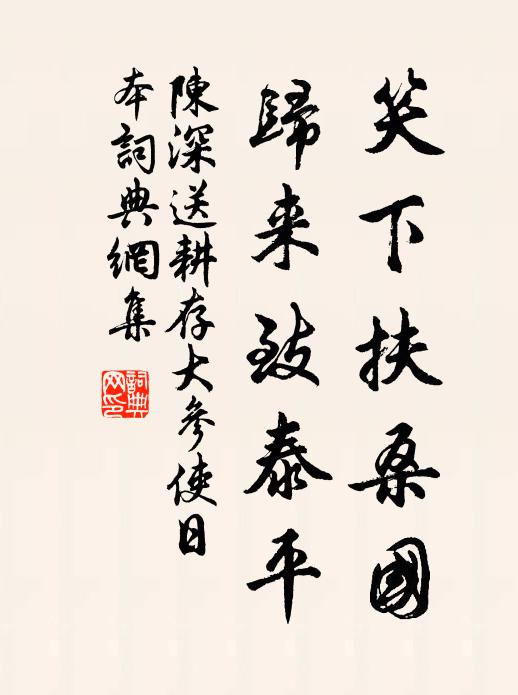 笑下扶桑國
歸来致泰平
陳深送耕存大參使日
本詞典網集
詞典
网印